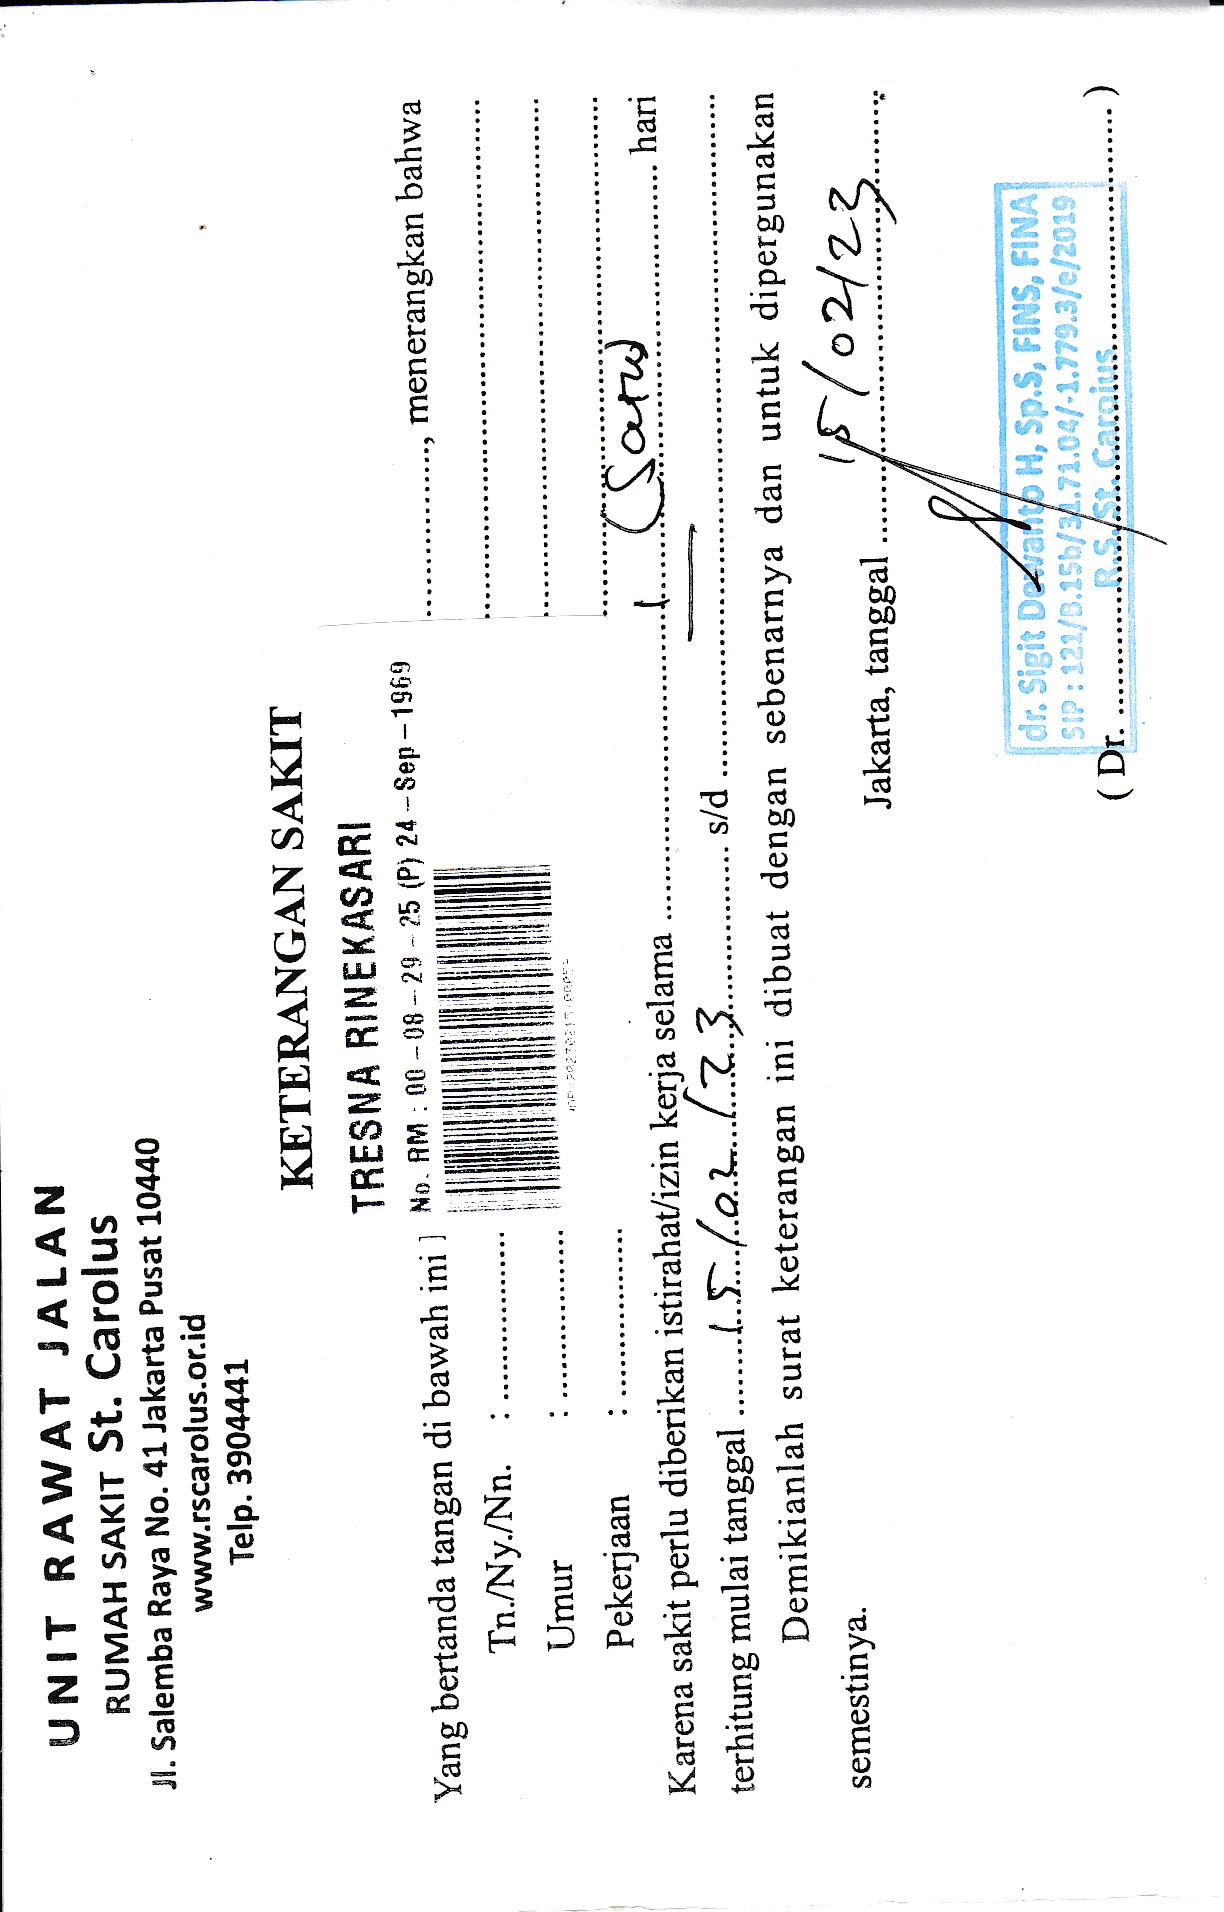 UNIT RAWAT JALAN
RUMAH SAKIT St. Carolus
Jl. Salemba Raya No. 41 Jakarta Pusat 10440
www.rscarolus.or.id
Telp. 3904441
KETERANGAN SAKIT
TRESNA RINEKASARI
No. RM : 00-08-29-25 (P) 24-Sep-1969
Yang bertanda tangan di bawah ini ..............., menerangkan bahwa
Tn./Ny./Nn. : ...............
Umur : ...............
Pekerjaan : ...............
Karena sakit perlu diberikan istirahat/izin kerja selama ............... 1 (Satu) ............... hari
terhitung mulai tanggal ........ 15/02/23 ........ s/d ........ —
Demikianlah surat keterangan ini dibuat dengan sebenarnya dan untuk dipergunakan
semestinya.
Jakarta, tanggal ........ 15/02/23 ........
dr. Sigit Dewanto H, Sp.S, FINS, FINA
SIP : 121/B.15b/31.71.04/-1.779.3/e/2019
R.S. St. Carolus
( Dr. ............... )